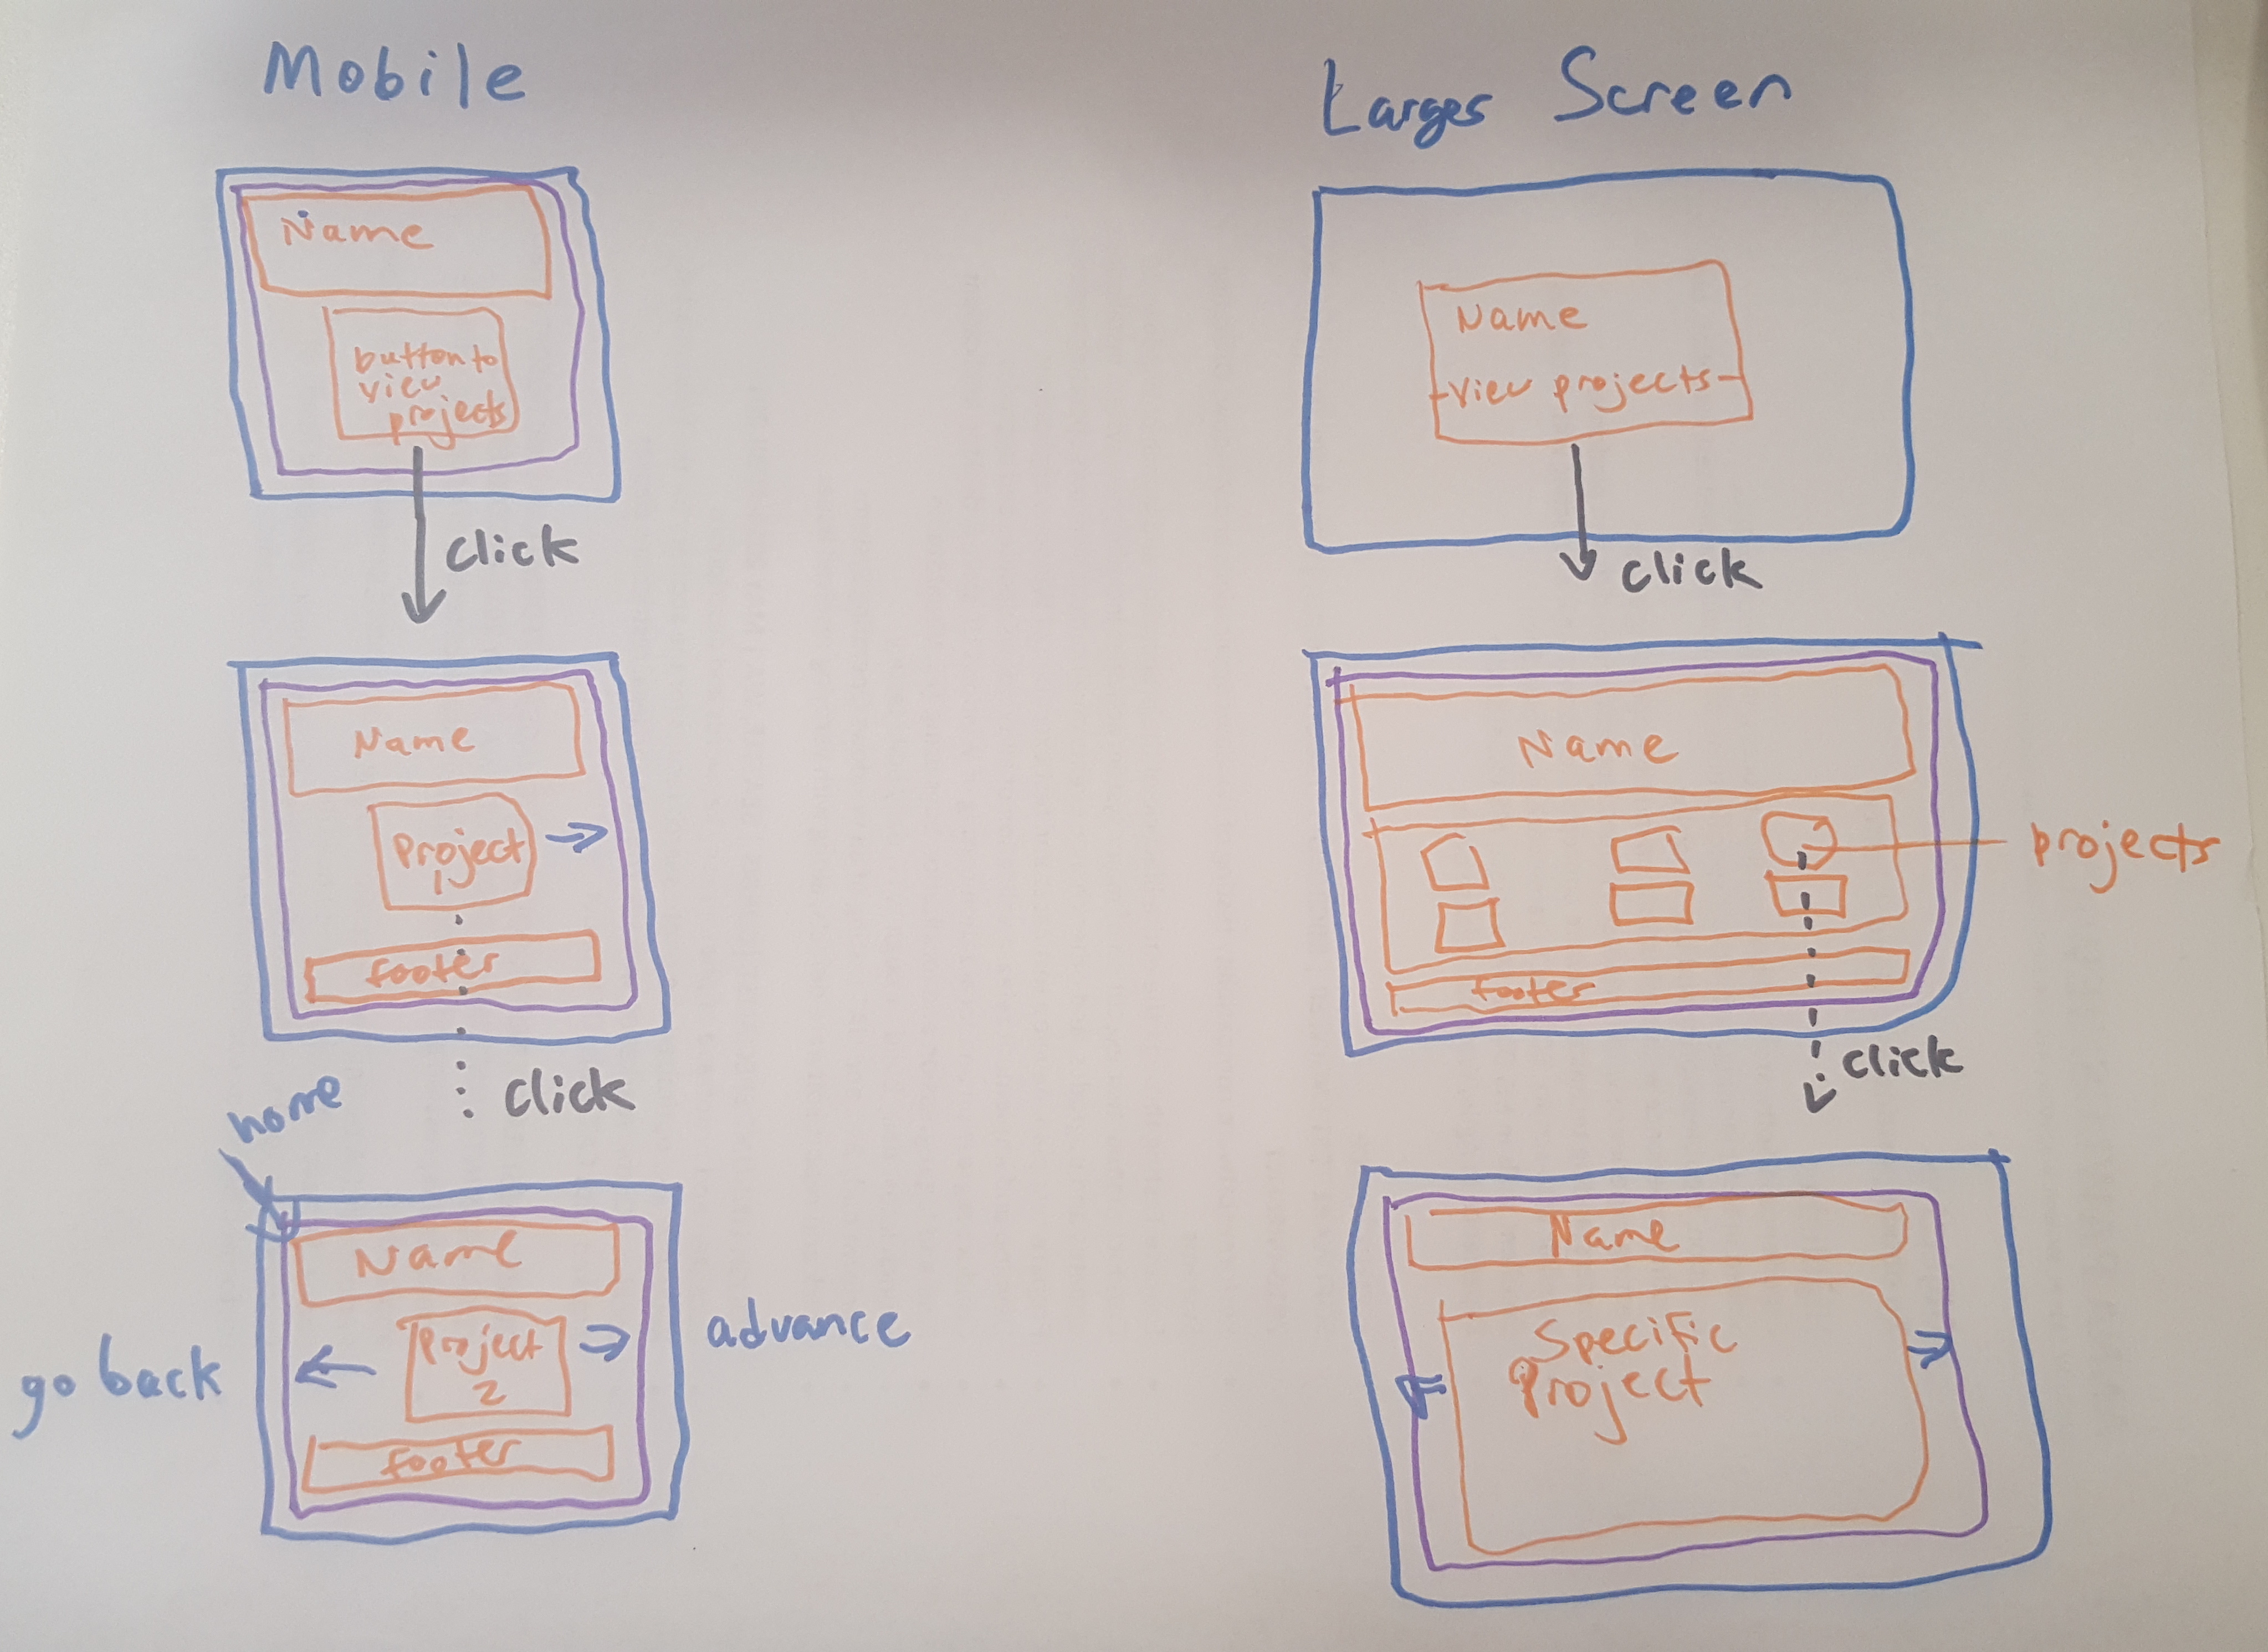 Mobile
Name
button to
view
projects
click
Name
Project
1
footer
click
home
Name
go back
Project
2
advance
footer
Larges Screen
Name
view projects
click
Name
projects
footer
click
Name
Specific
Project